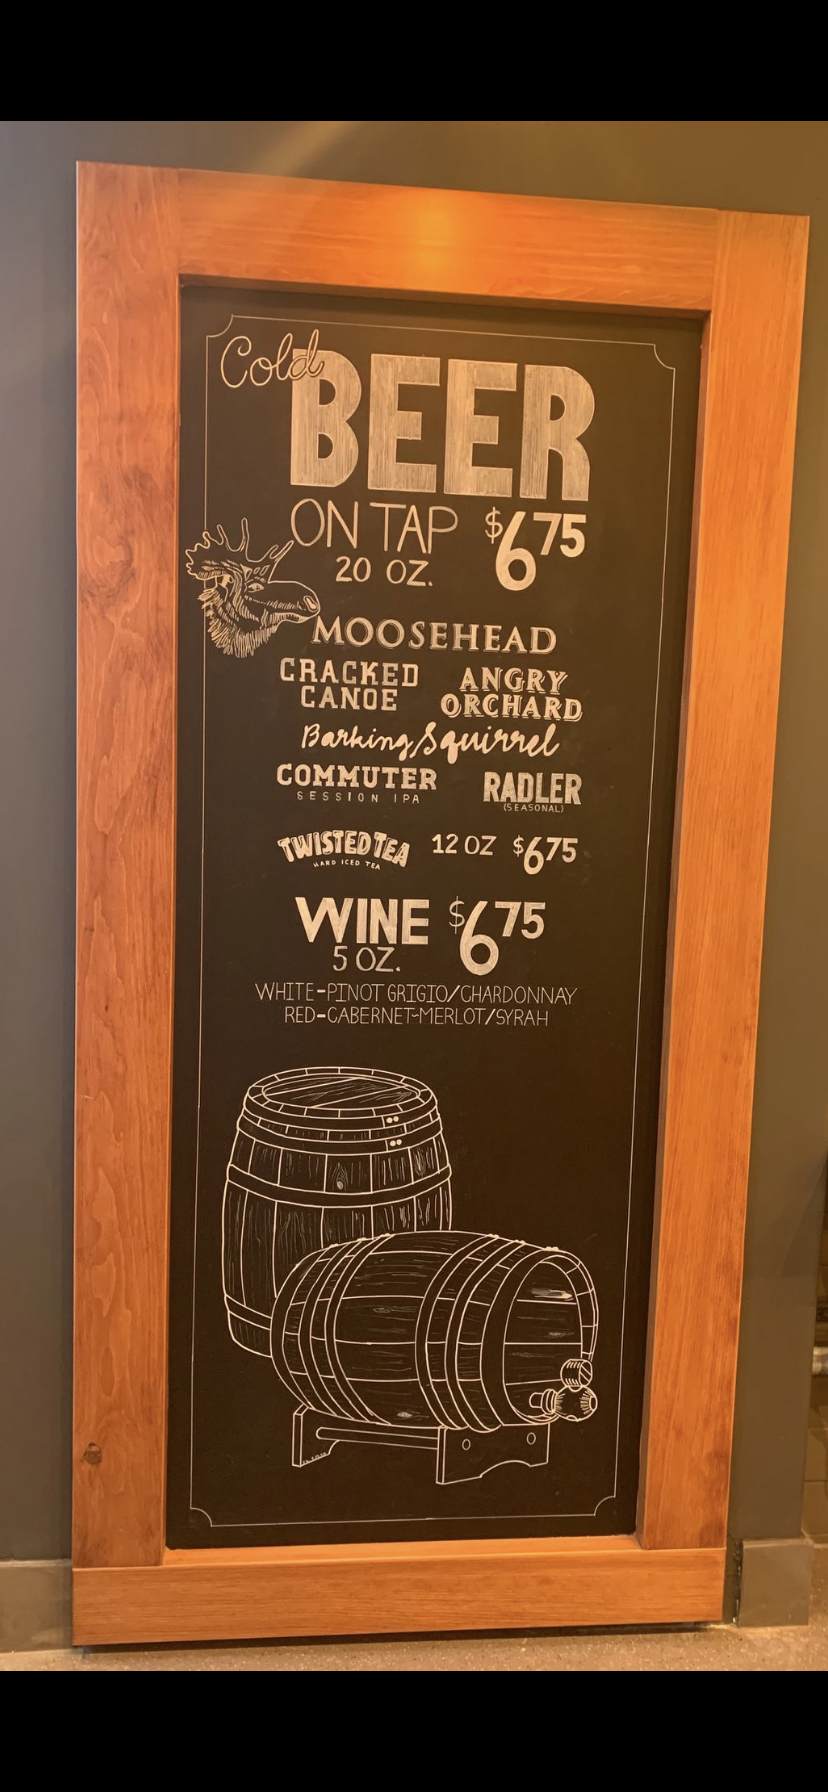 Cold
BEER
ON TAP $6.75
20 OZ.
MOOSEHEAD
CRACKED CANOE
ANGRY ORCHARD
Barking Squirrel
COMMUTER
SESSION IPA
RADLER
(SEASONAL)
TWISTED TEA 12 OZ $6.75
HARD ICED TEA
WINE $6.75
5 OZ.
WHITE-PINOT GRIGIO/CHARDONNAY
RED-CABERNET-MERLOT/SYRAH